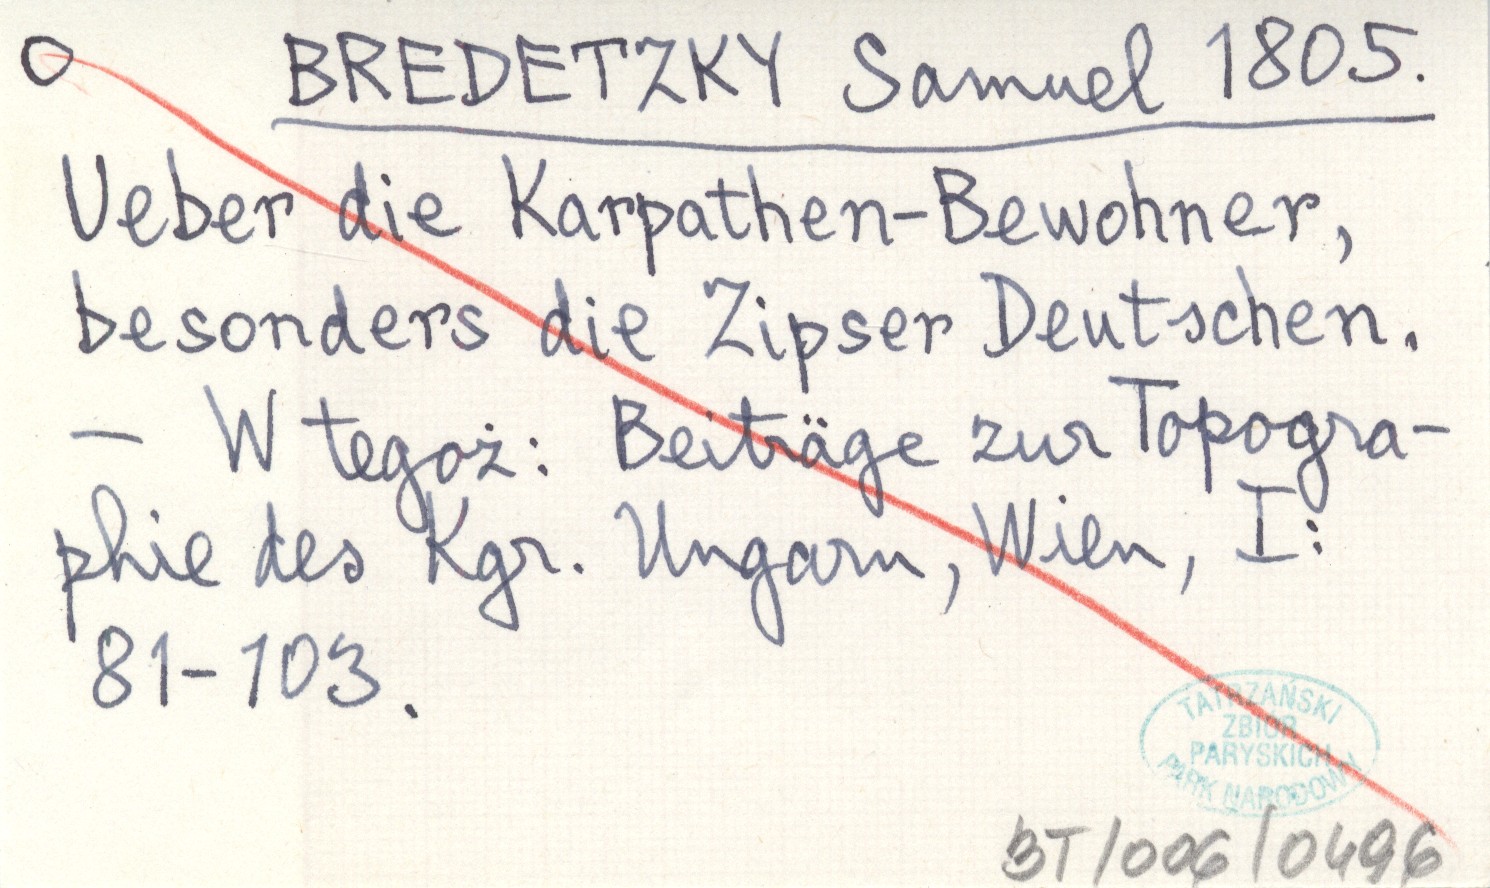 O BREDETZKY Samuel 1805.
Ueber die Karpathen-Bewohner,
besonders die Zipser Deutschen.
— W tegoż: Beiträge zur Topogra-
phie des Kgr. Ungarn, Wien, I:
81-103.
TATRZAŃSKI
ZBIÓR
PARYSKICH
PARK NARODOWY
BT/006/0496